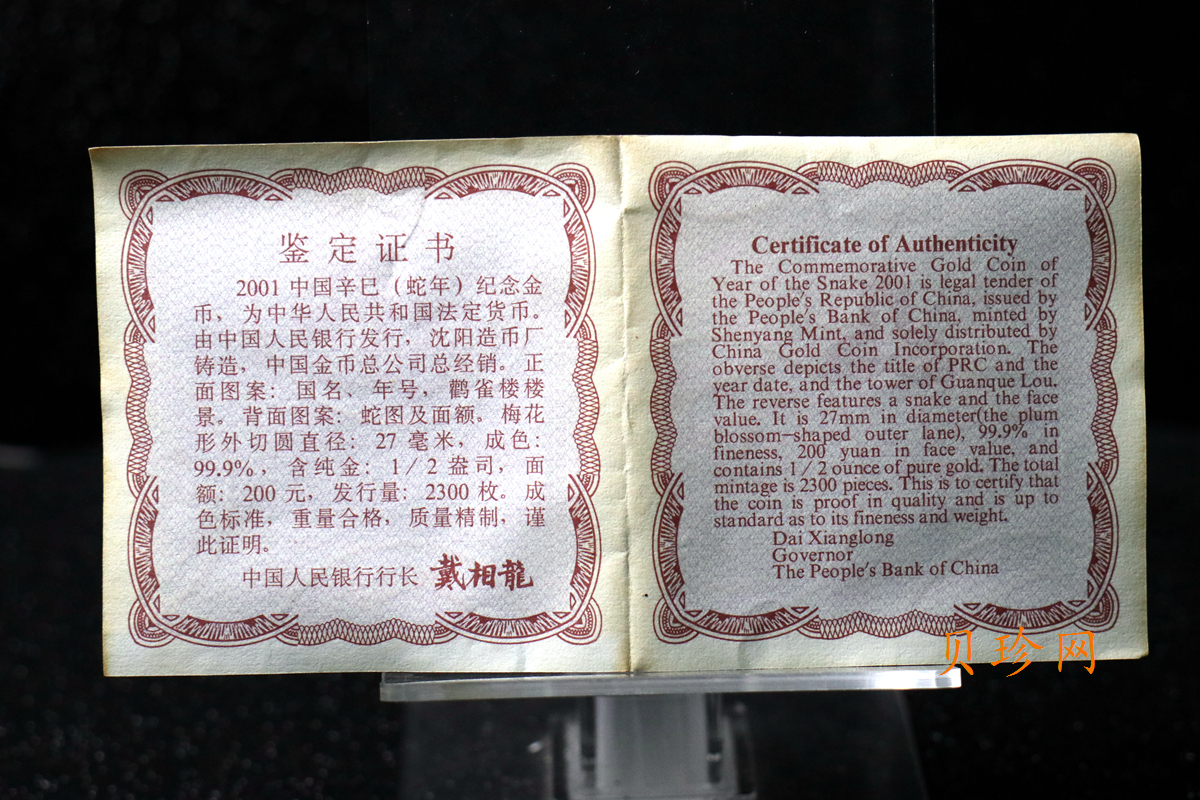 鉴定证书
2001 中国辛巳（蛇年）纪念金
币，为中华人民共和国法定货币。
由中国人民银行发行，沈阳造币厂
铸造，中国金币总公司总经销。正
面图案：国名、年号，鹳雀楼楼
景。背面图案：蛇图及面额。梅花
形外切圆直径：27 毫米，成色：
99.9%，含纯金：1／2 盎司，面
额：200 元，发行量：2300 枚。成
色标准，重量合格，质量精制，谨
此证明。
中国人民银行行长 戴相龍
Certificate of Authenticity
The Commemorative Gold Coin of
Year of the Snake 2001 is legal tender of
the People's Republic of China, issued by
the People's Bank of China, minted by
Shenyang Mint, and solely distributed by
China Gold Coin Incorporation. The
obverse depicts the title of PRC and the
year date, and the tower of Guanque Lou.
The reverse features a snake and the face
value. It is 27mm in diameter(the plum
blossom-shaped outer lane), 99.9% in
fineness, 200 yuan in face value, and
contains 1／2 ounce of pure gold. The total
mintage is 2300 pieces. This is to certify that
the coin is proof in quality and is up to
standard as to its fineness and weight.
Dai Xianglong
Governor
The People's Bank of China
贝珍网